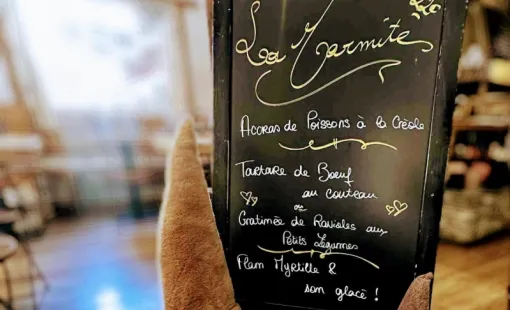 La Marmite
Acoras de Poissons à la Créole
Tartare de Boeuf
au couteau
ou
Gratinée de Ravioles aux
Petits Légumes
Flan Myrtille &
son glacé !